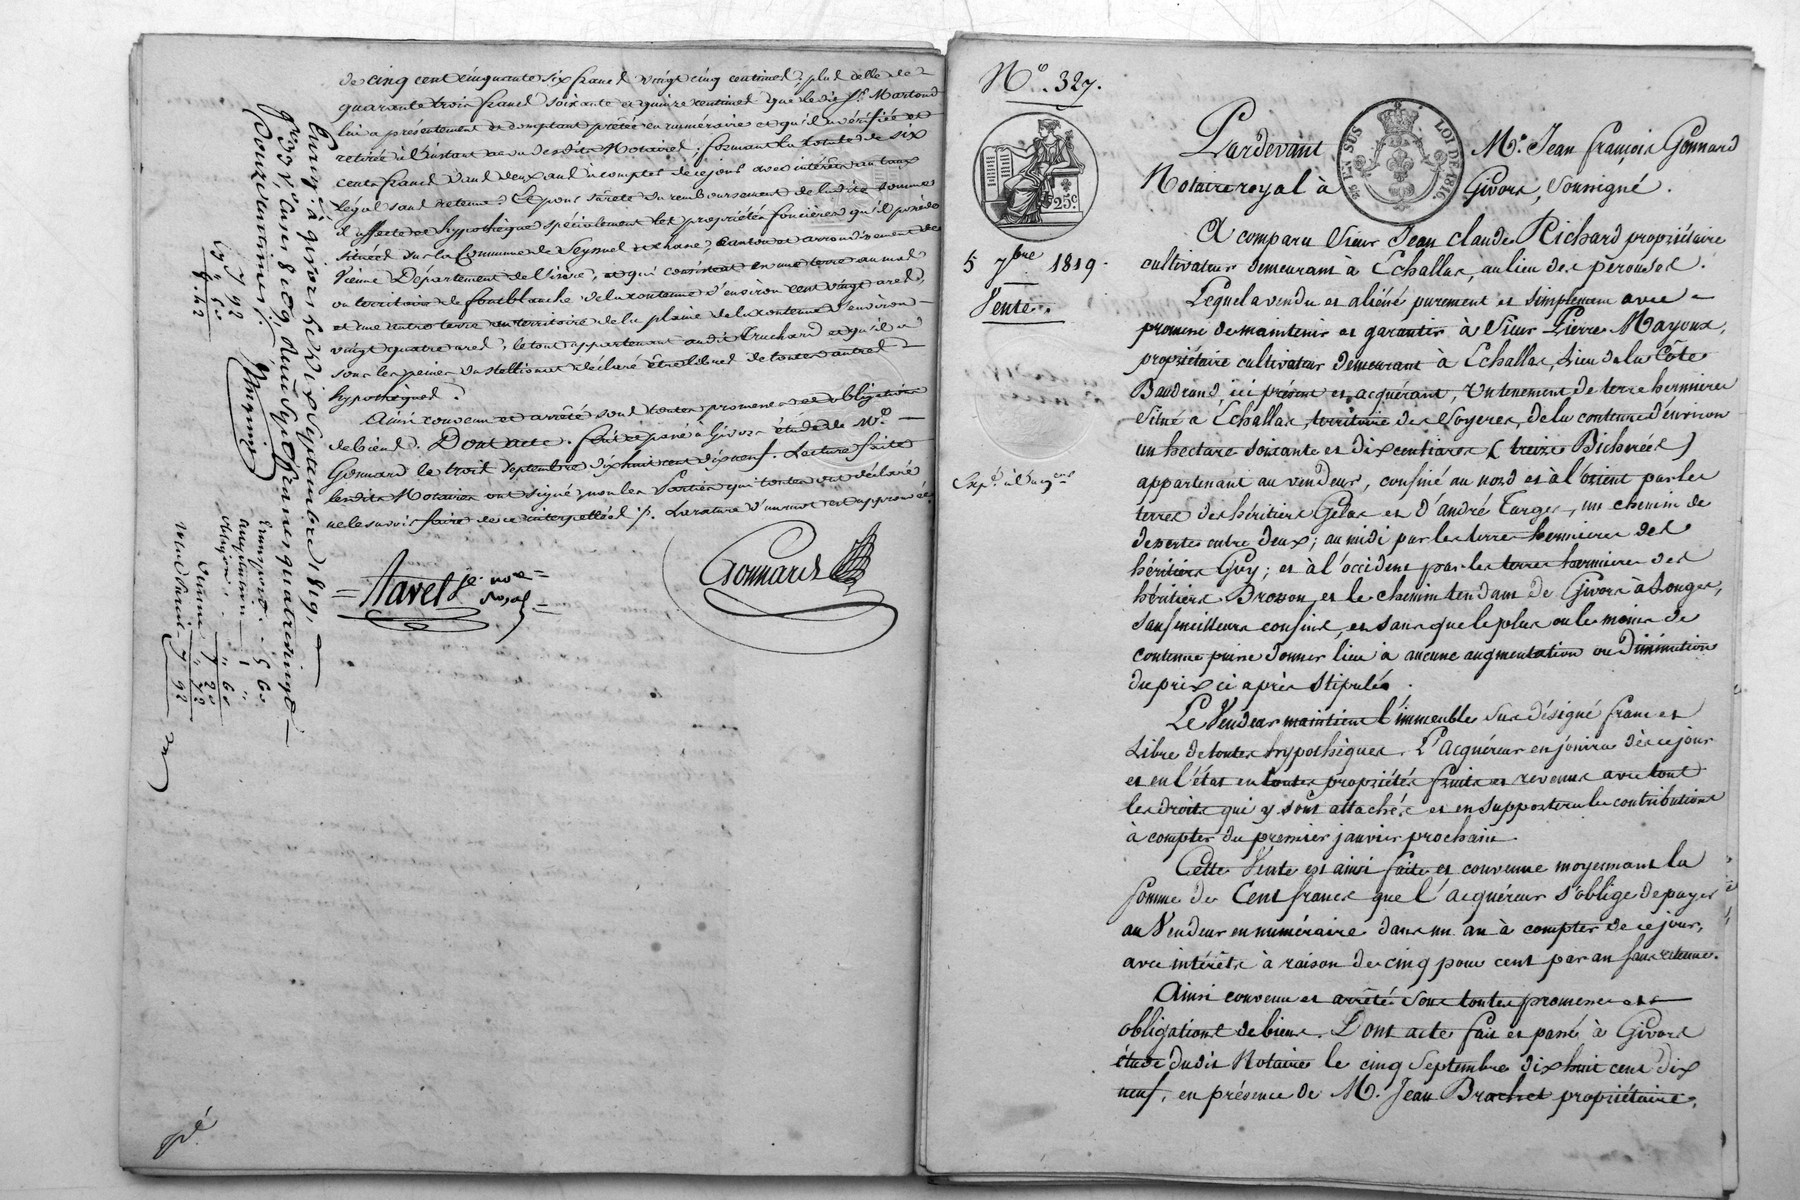 de cinq cent cinquante six francs vingt cinq centimes, plus celle de
quarante trois francs soixante et quinze centimes que ledit Sr. Martoud
lui a présentement et comptant prêtée en numéraire et qu'il a vérifiée et
retirée à l'instant au vu desdits Notaires; formant la totale de six
cents francs dans deux ans à compter de ce jour avec intérêts au taux
légal sans retenue. Et pour sûreté du remboursement de ladite somme
il affecte et hypothèque spécialement les propriétés foncières qu'il possède
situées sur la Commune de Seyssuel et chane, Canton et arrondissement de
Vienne Département de l'isère, et qui consistent en une terre au mas
ou territoire de fontblanche de la contenue d'environ cent vingt ares,
et une autre terre au territoire de la plaine de la contenue d'environ
vingt quatre ares, le tout appartenant audit Truchard et qu'il a
sous les peines du stellionat déclaré être libres de toutes autres
hypothèques.
Ainsi convenu et arrêté sous toutes promesses et obligations
de biens. Dont acte. fait et passé à Givors étude de Me.
Gonnard le trois Septembre dix huit cent dix neuf. Lecture faite
lesdits Notaires ont signé, non les Parties qui toutes ont déclaré
ne le savoir faire de ce interpellées ./. La rature d'un mot est approuvée.
= Navel je. nore =
royal =
Gonnard
Enrg. à givors le dix septembre 1819,
douze centimes
7 92
" 50
8. 42
Transport. 5 60
7 20
" 72
7 92
N.o 327.
LOI DE 1816.
25c
Pardevant Me. Jean françois Gonnard
Notaire royal à Givors, soussigné.
5 7bre 1819.
Vente.
A comparu Sieur Jean claude Richard propriétaire
cultivateur demeurant à Echallas, au lieu des pérouses.
Lequel a vendu et aliéné purement et simplement avec
promesse de maintenir et garantir à Sieur Pierre Mayoux,
propriétaire cultivateur demeurant à Echallas, Lieu de la Côte
Baudrand, ici présent et acquérant, Un tenement de terre hermière
Situé à Echallas, territoire des Loyeres, de la contenue d'environ
un hectare soixante et dix centiares (treize Bicherées)
appartenant au vendeur, confiné au nord et à l'orient par les
terres des héritiers Gelas et d'andré Targe, un chemin de
desserte entre deux; au midi par les terres hermières des
héritiers Guy; et à l'occident par les terres hermières des
héritiers Brosson, et le chemin tendant de Givors à Longes,
Sauf meilleurs confins, et sans que le plus ou le moins de
contenue puisse donner lieu à aucune augmentation ou Diminution
du prix ci après Stipulé.
Le Vendeur maintient l'immeuble Sus désigné franc et
Libre de toutes hypothèques. L'acquéreur en jouira dès ce jour
et en l'état en toutes propriétés fruits et revenus avec tout
les droits qui y sont attachés et en supportera les contributions
à compter du premier janvier prochain.
Cette Vente est ainsi faite et convenue moyennant la
Somme de Cent francs que l'acquéreur s'oblige de payer
au Vendeur en numéraire dans un an à compter de ce jour,
avec intérêts à raison de cinq pour cent par an sans retenue.
Expe. à l'acqreur
Ainsi convenu et arrêté sous toutes promesses et
obligations de biens. Dont acte fait et passé à Givors
étude dudit Notaire le cinq Septembre dix huit cent dix
neuf, en présence de M. Jean Brachet propriétaire,